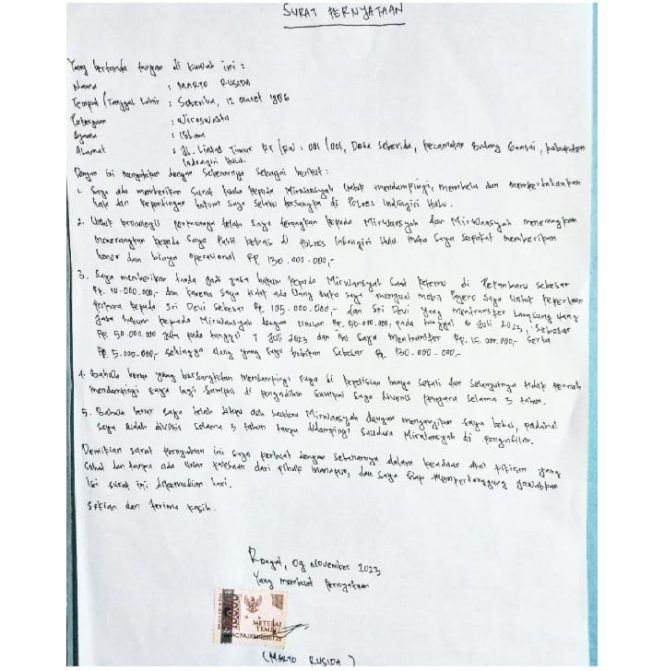 SURAT PERNYATAAN
Yang bertanda tangan di bawah ini :
Nama : MARTO RUSIDA
Tempat/Tanggal Lahir : Seberida, 12 Maret 1986
Pekerjaan : Wiraswasta
Agama : Islam
Alamat : Jl. Lintas Timur RT/RW : 001/001, Desa Seberida, Kecamatan Batang Gansal, Kabupaten
Indragiri Hulu.
Dengan ini menyatakan dengan sebenarnya sebagai berikut :
1. Saya ada memberikan Surat Kuasa kepada Mirwansyah untuk mendampingi, membela dan mempertahankan
hak dan kepentingan hukum saya selaku tersangka di Polres Indragiri Hulu.
2. kronologis perkaranya telah saya terangkan kepada Mirwansyah dan Mirwansyah menerangkan
menerangkan kepada saya Pasti bebas di Polres Indragiri Hulu maka saya sepakat memberikan
honor dan biaya operasional Rp 130.000.000,-
3. Saya memberikan tanda jadi jasa hukum kepada Mirwansyah saat ketemu di Pekanbaru sebesar
Rp. 10.000.000,- dan karena saya tidak ada uang maka saya menjual mobil Pajero saya untuk keperluan
perkara kepada Sri Devi sebesar Rp. 105.000.000,- dan Sri Devi yang mentransfer langsung uang
jasa hukum kepada Mirwansyah dengan Rp. 50.000.000,- pada tanggal 6 Juli 2023, sebesar
Rp. 50.000.000 juta pada tanggal 7 Juli 2023 dan saya mentransfer Rp. 15.000.000,- serta
Rp. 5.000.000,- sehingga uang yang saya habiskan sebesar Rp 130.000.000,-
4. Bahwa benar yang bersangkutan mendampingi saya di kepolisian hanya sekali dan selanjutnya tidak pernah
mendampingi saya lagi sampai di pengadilan sampai saya divonis penjara selama 3 tahun.
5. Bahwa benar saya telah ditipu oleh saudara Mirwansyah dengan menjanjikan saya bebas, padahal
saya sudah divonis selama 3 tahun tanpa didampingi saudara Mirwansyah di pengadilan.
Demikian surat pernyataan ini saya perbuat dengan sebenarnya dalam keadaan akal pikiran yang
sehat dan tanpa ada unsur paksaan dari pihak manapun, dan saya siap mempertanggung jawabkan
isi surat ini dikemudian hari.
Sekian dan terima kasih.
Rengat, 09 November 2023
Yang membuat pernyataan
10000
METERAI
TEMPEL
(MARTO RUSIDA)